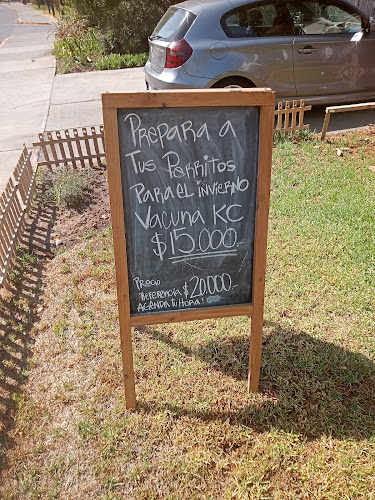 Prepara a
Tus Perritos
Para el invierno
Vacuna KC
$15.000.-
Precio
Referencia $20.000.-
Agenda tu Hora!